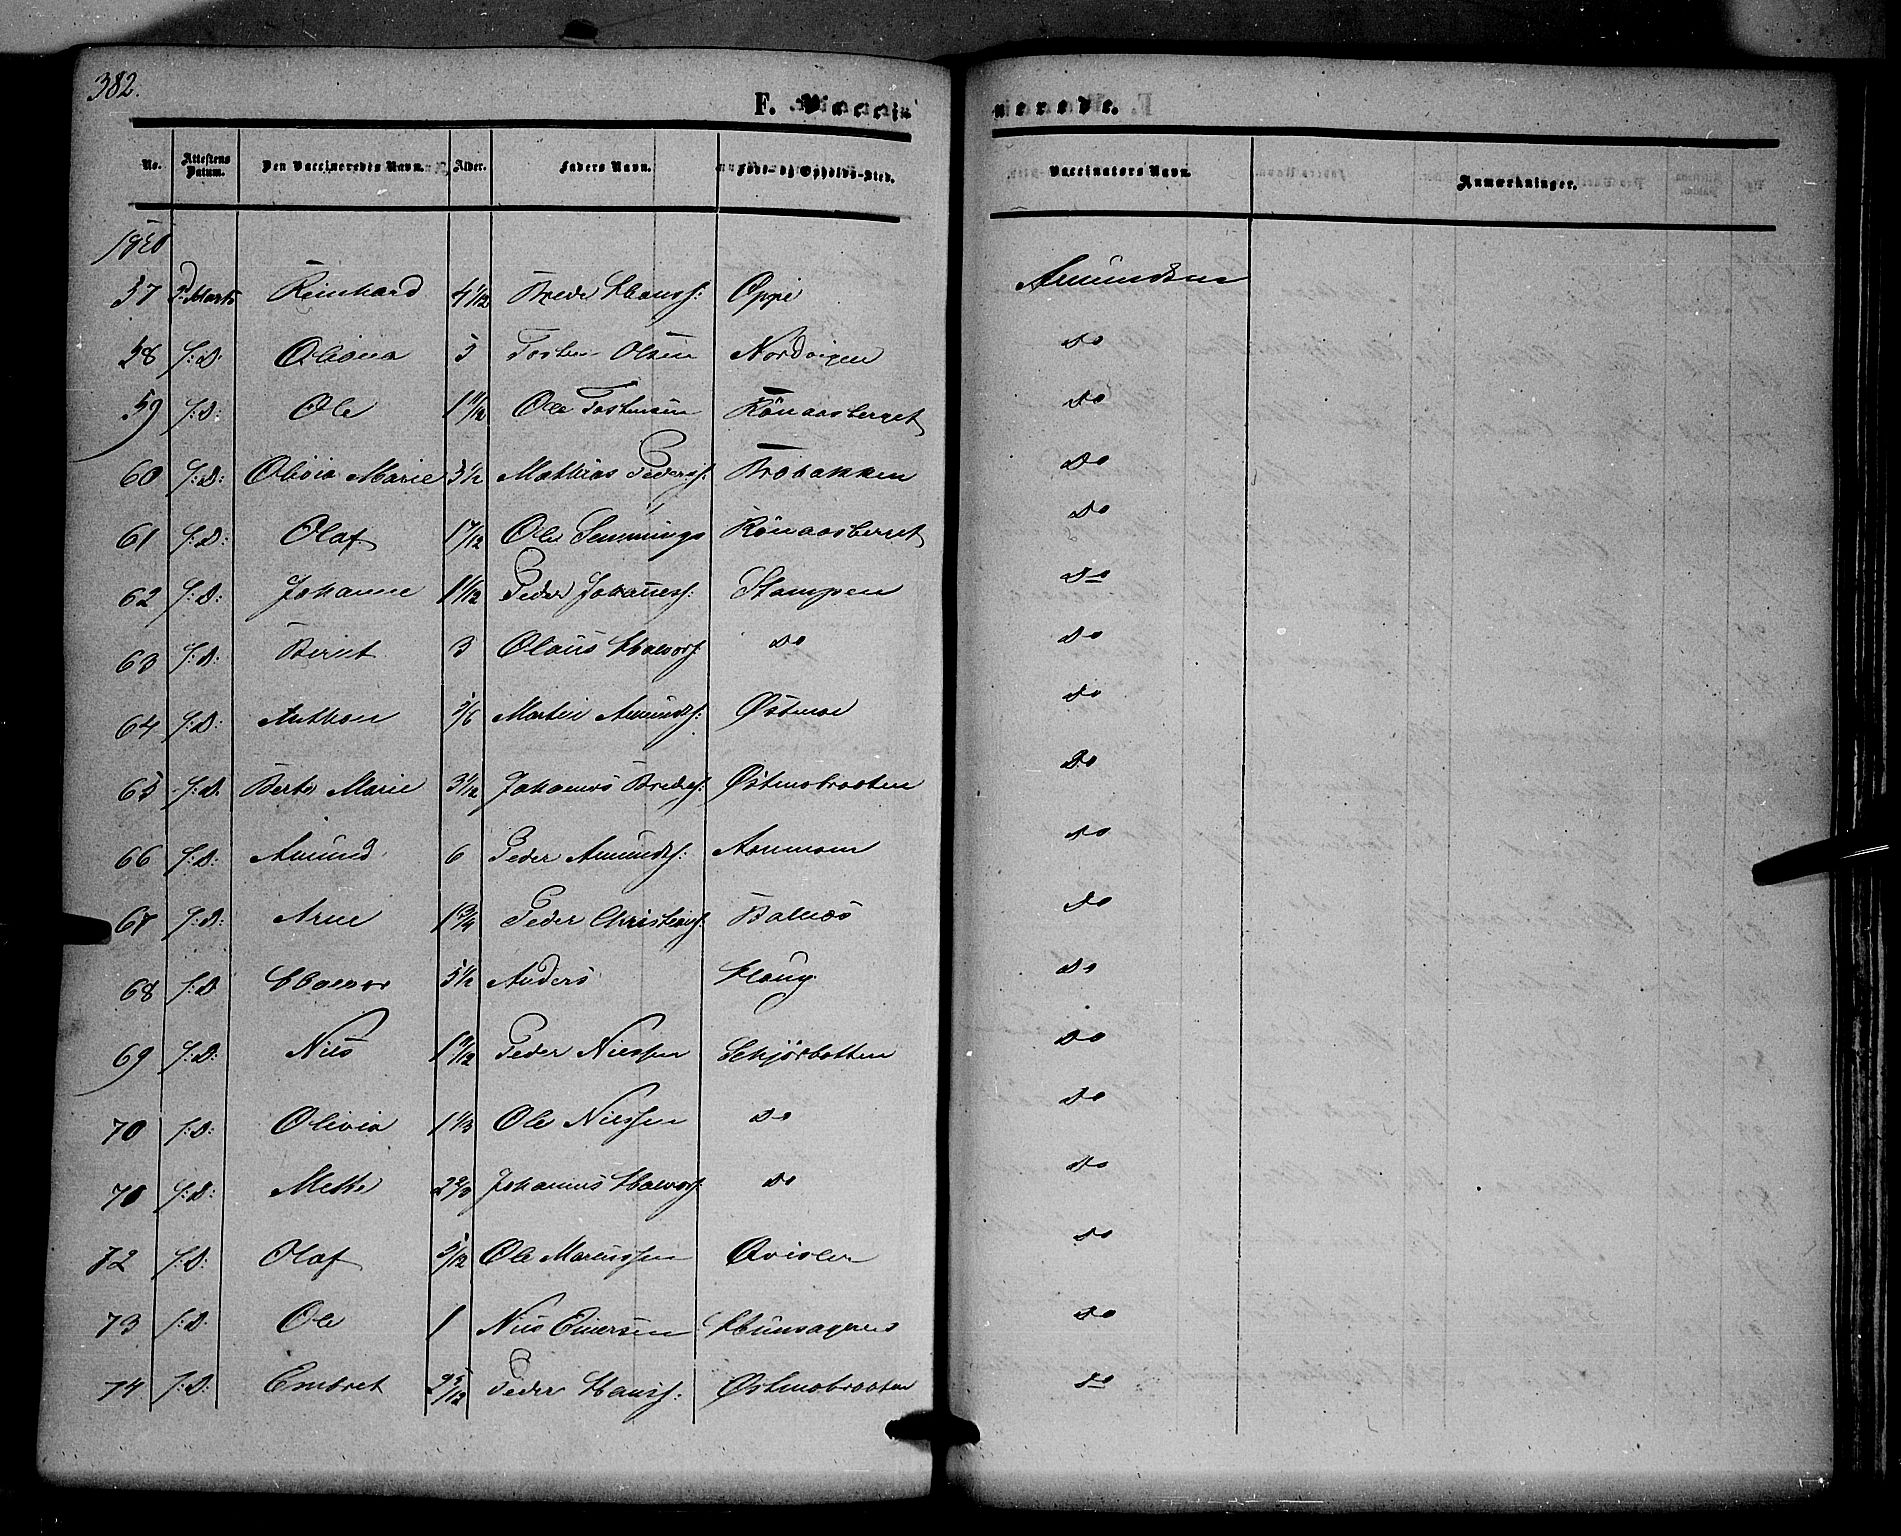 382.
F. Vaccinerede.
No. Attestens Datum. Den Vaccineredes Navn. Alder. Faders Navn. Føde- og Opholds-Sted. Vaccinators Navn. Anmærkninger.
57 Marts Reinhard 4 1/12 Brede Hanss: Oppi Amundsen
58 S: D: Oliana 5 Olsen Nordvigen Do
59 S: D: Ole 1 11/12 Ole Tostensen Rönaasberget Do
60 S: D: Olivia Marie 3 1/2 Mathias Pederss: Brobakken Do
61 S: D: Olaf 1 7/12 Ole Semmings Rönaasberget Do
62 S: D: Johanne 1 1/12 Peder Johaness: Stampen Do
63 S: D: Berit 3 Olaus Halvors: Do Do
64 S: D: Anthon 5/6 Martin Amunds: Østmoe Do
65 S: D. Berte Marie 3 1/12 Johannes Bredes: Østmobraaten Do
66 S: D: Amund 6 Peder Amunds: Do
67 S: D: Arne 1 3/4 Peder Christians: Balnæs Do
68 S: D Halvor 5 1/2 Anders Haug Do
69 S: D: Nils 1 11/12 Peder Nielssen Schjørbotten Do
70 S: D: Olivia 1 1/3 Ole Nielssen Do Do
70 S: D: Mette 2 2/3 Johannes Halvors: Do Do
72 S: D: Olaf 5/12 Ole Mariussen Qvislen Do
73 S: D. Ole 1 Nils Einersen Do
74 S: D: Embret 2 5/12 Peder Hanss: Østmobraaten Do